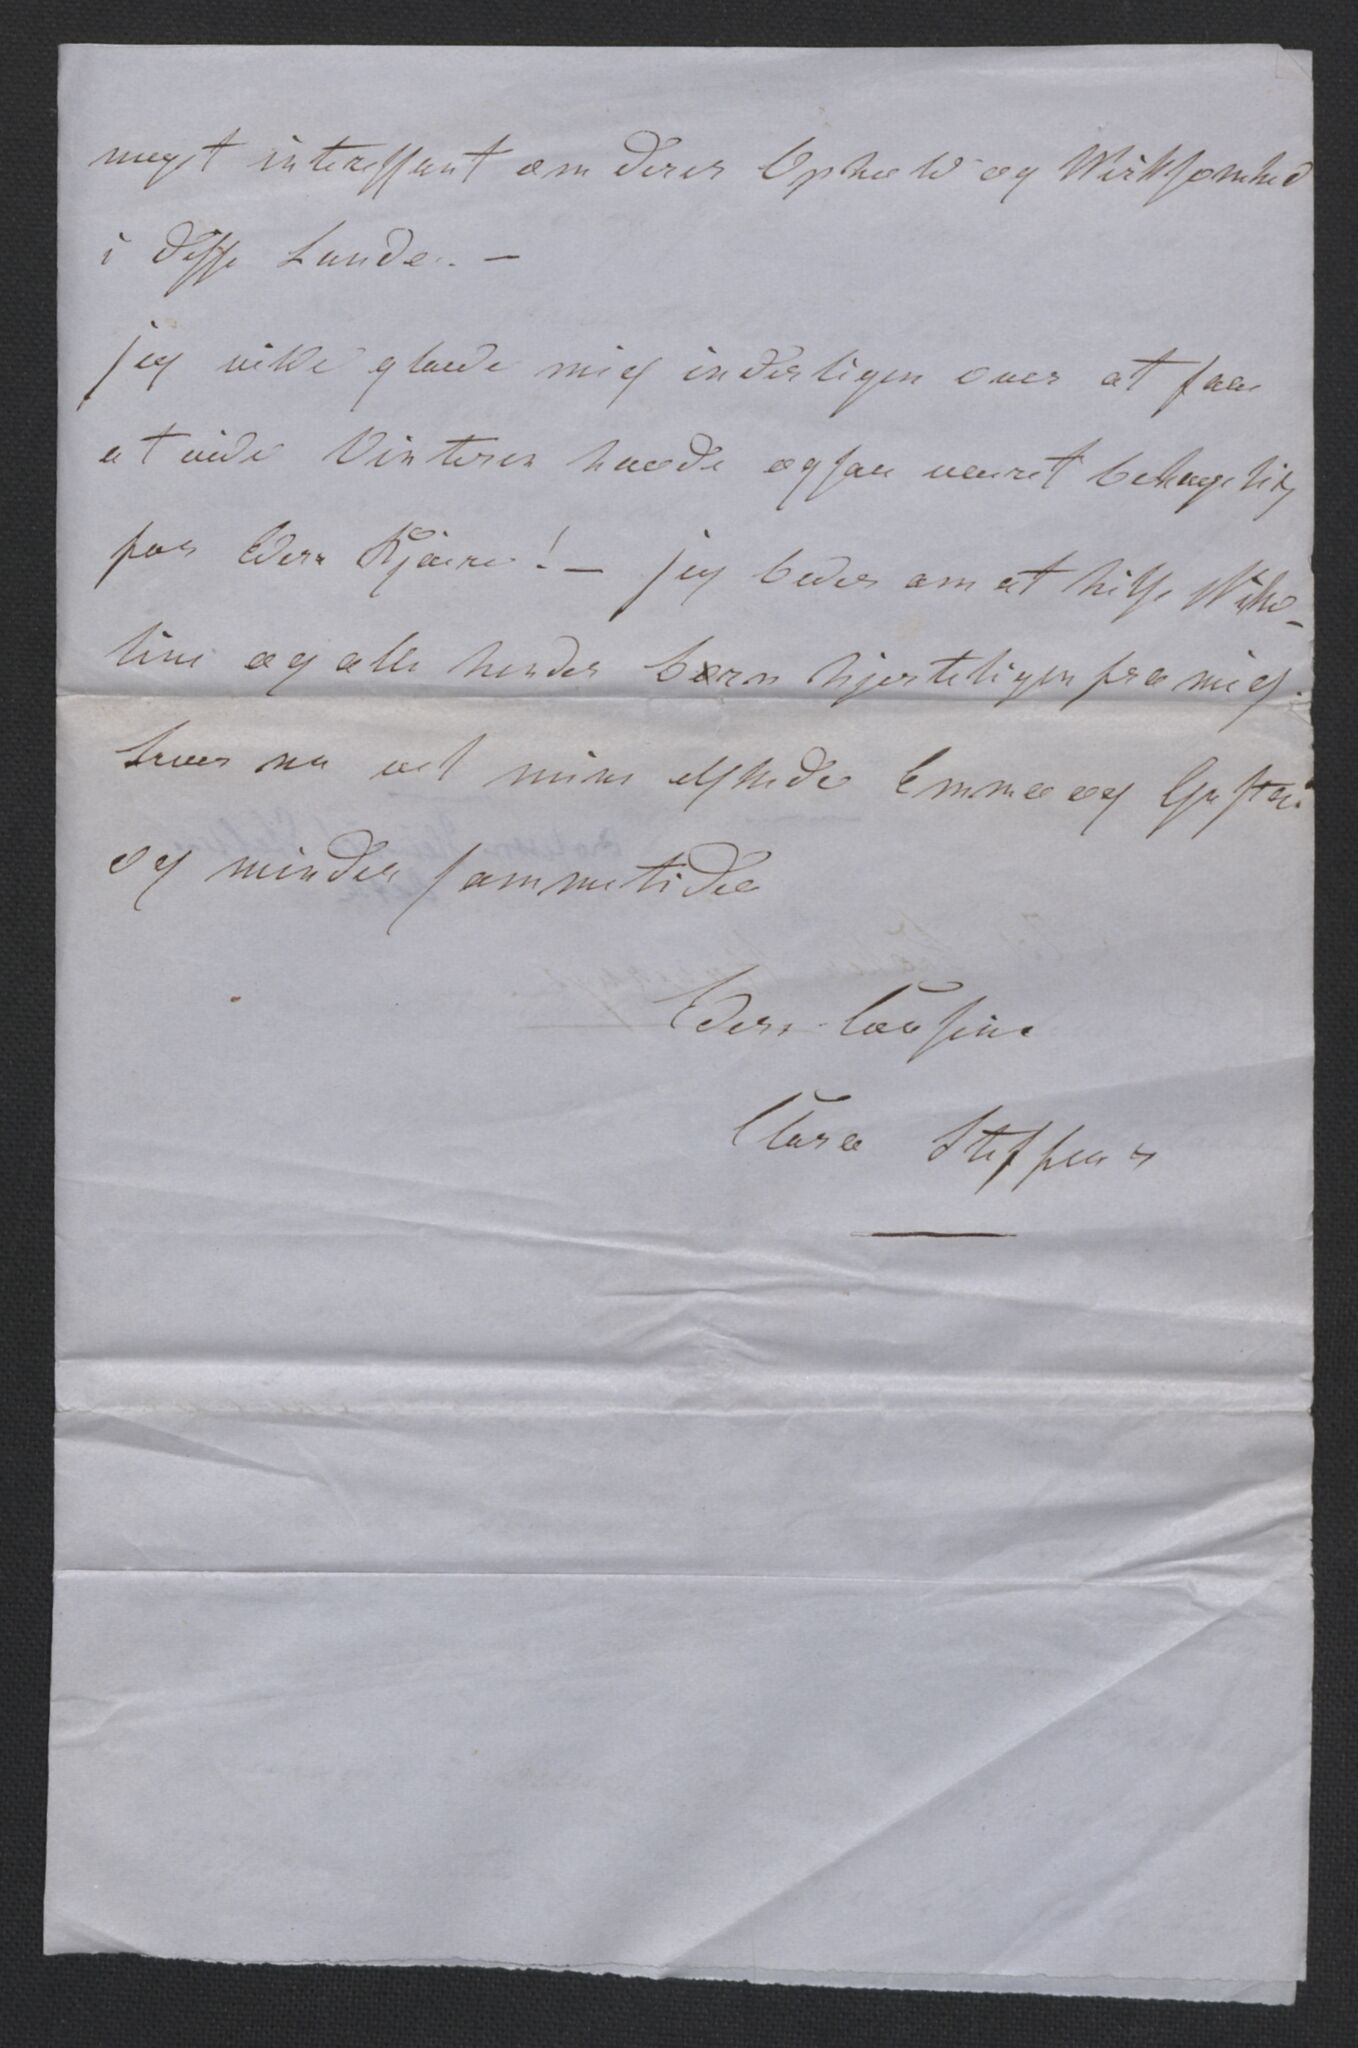 meget interessant om deres Ophold og Wirksomhed
i disse Lande. —
jeg vilde glæde mig inderligen over at faae
at vide Vinteren havde ogsaa været behagelig
for Eder Kjære! — jeg beder om at hilse Wilhe-
line og alle hendes børn hjerteligen fra mig.
Lever nu vel mine elskede Emma og Gustav
og minder sammetider
Eders Cousine
Clara Steffens